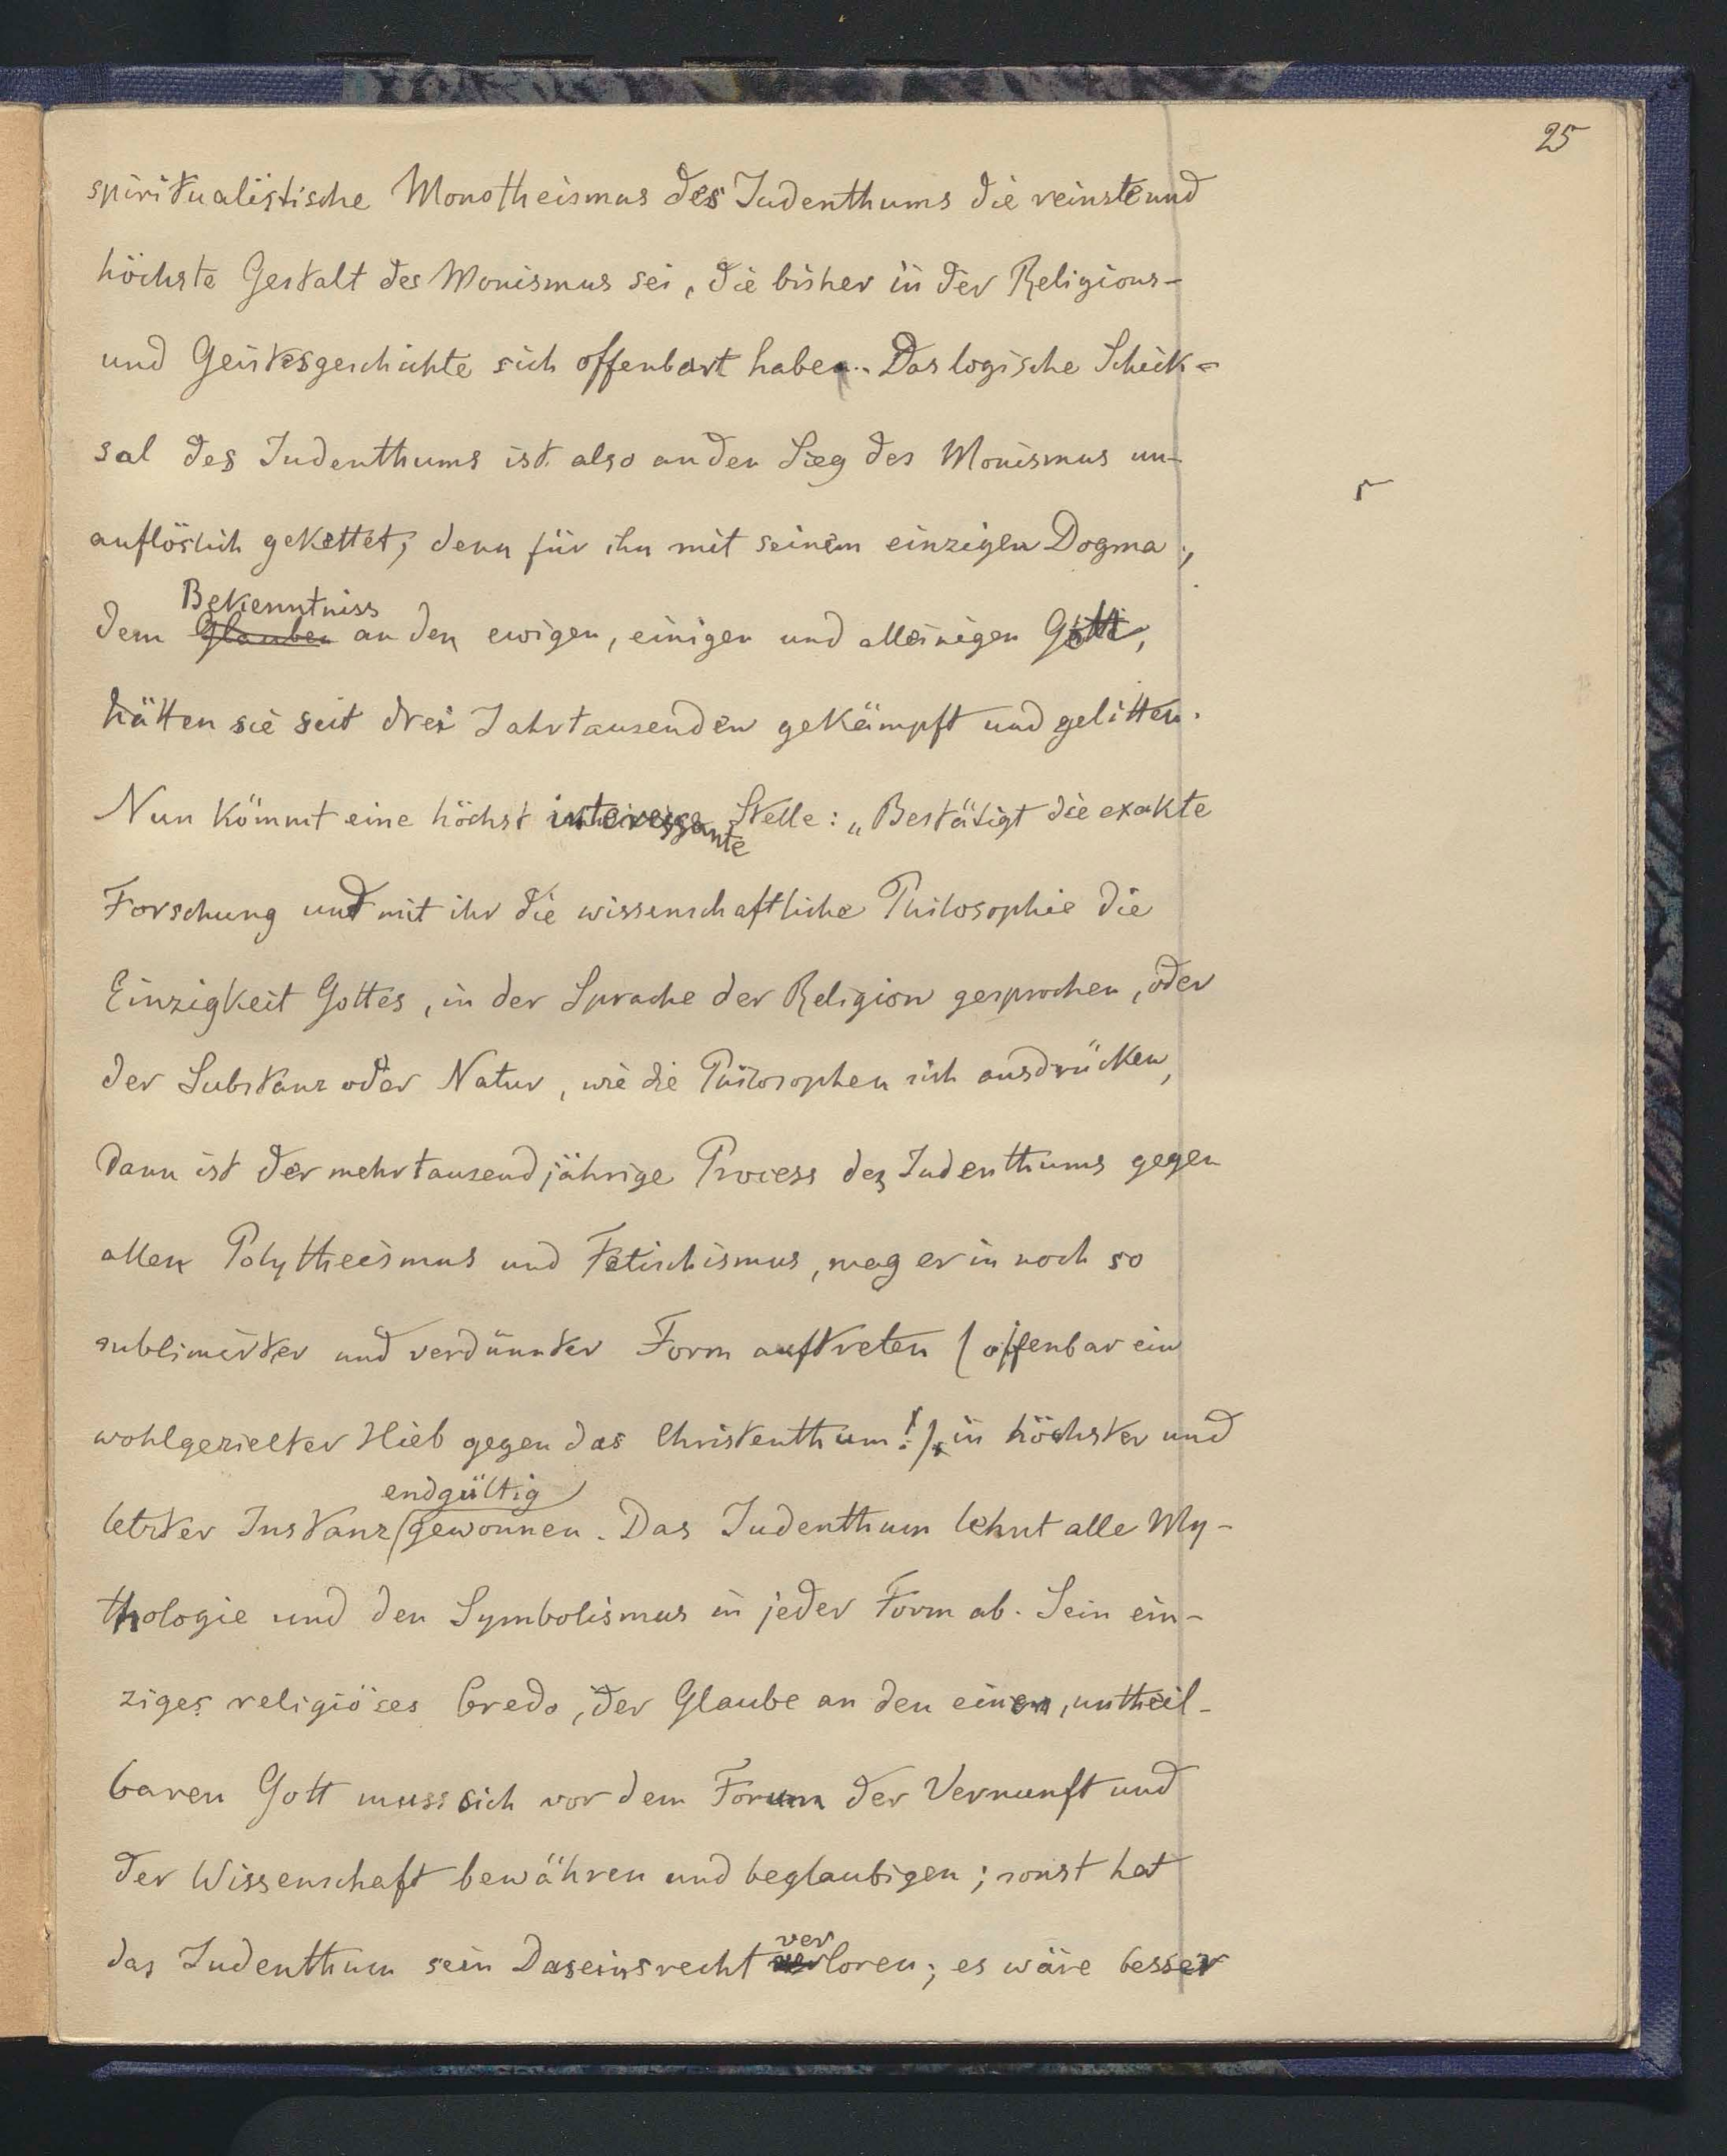 25
spiritualistische Monotheismus des Judenthums die reinste und
höchste Gestalt des Monismus sei, die bisher in der Religions-
und Geistesgeschichte sich offenbart habe. Das logische Schick-
sal des Judenthums ist also an den Sieg des Monismus un-
auflöslich gekettet; denn für ihn mit seinem einzigen Dogma,
Bekenntniss
dem Glauben an den ewigen, einigen und alleinigen Gott,
hätten sie seit drei Jahrtausenden gekämpft und gelitten.
Nun kömmt eine höchst interessante Stelle: „Bestätigt die exakte
Forschung und mit ihr die wissenschaftliche Philosophie die
Einzigkeit Gottes, in der Sprache der Religion gesprochen, oder
der Substanz oder Natur, wie die Philosophen sich ausdrücken,
dann ist der mehrtausendjährige Process des Judenthums gegen
allen Polytheismus und Fetischismus, mag er in noch so
sublimirter und verdünnter Form auftreten (offenbar ein
wohlgezielter Hieb gegen das Christenthum!), in höchster und
endgültig
letzter Instanz gewonnen. Das Judenthum lehnt alle My-
thologie und den Symbolismus in jeder Form ab. Sein ein-
ziges religiöses Credo, der Glaube an den einen, untheil-
baren Gott muss sich vor dem Forum der Vernunft und
der Wissenschaft bewähren und beglaubigen; sonst hat
das Judenthum sein Daseinsrecht verloren; es wäre besser